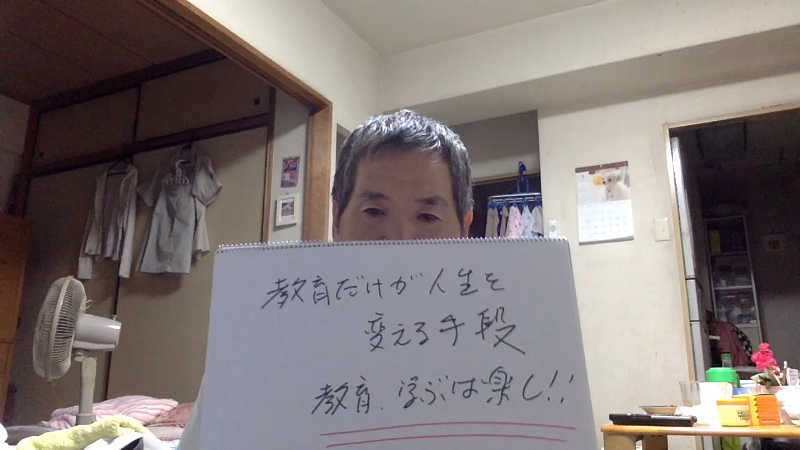 教育だけが人生を
変える手段
教育、学ぶは楽し!!